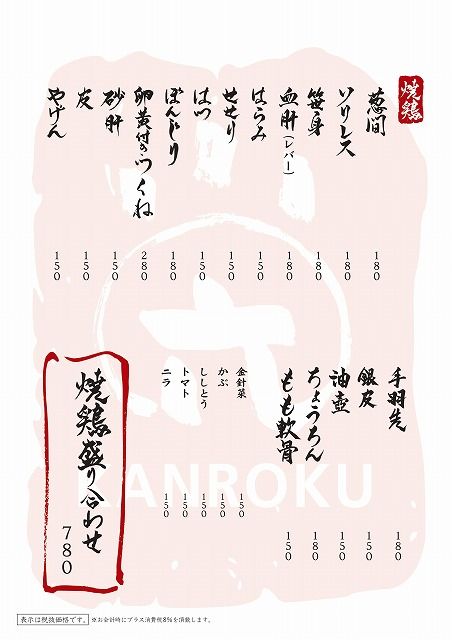 焼鶏
葱間 180
ソリレス 180
笹身 180
血肝(レバー) 180
はらみ 150
せせり 150
はつ 150
ぼんじり 180
卵黄付きつくね 280
砂肝 150
皮 150
やげん 150
手羽先 180
銀皮 150
油壺 150
ちょうちん 180
もも軟骨 150
金針菜 150
かぶ 150
ししとう 150
トマト 150
ニラ 150
焼鶏盛り合わせ
780
KANROKU
表示は税抜価格です。 ※お会計時にプラス消費税8%を頂戴します。